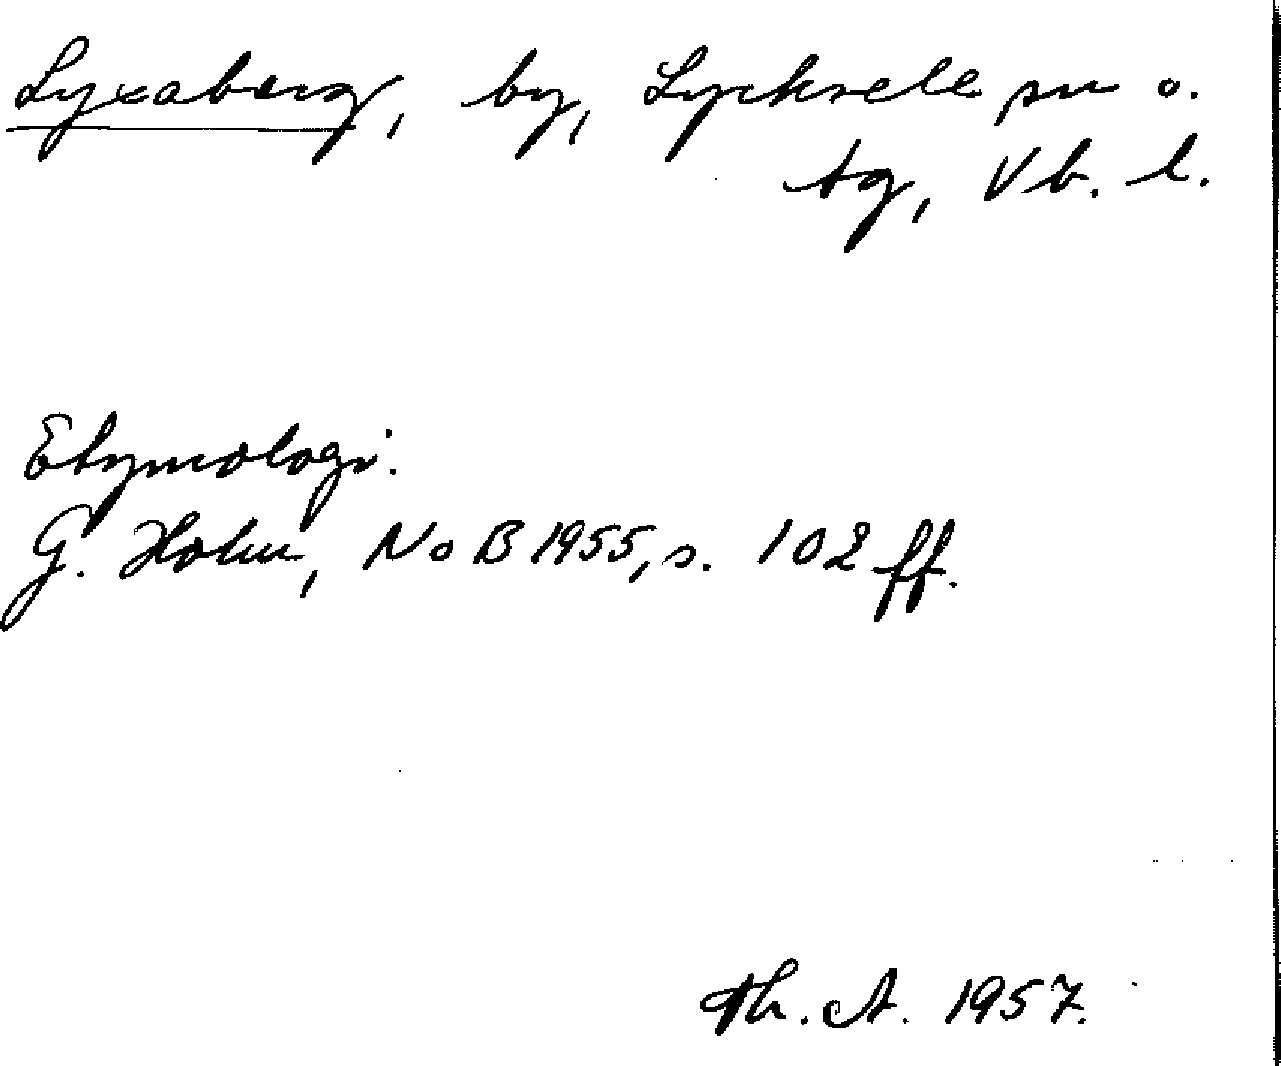 Lyxaberg, by, Lycksele sn o.
tg, Vb. l.
Etymologi:
G. Holm, NoB 1955, s. 102 ff.
Th. A. 1957.